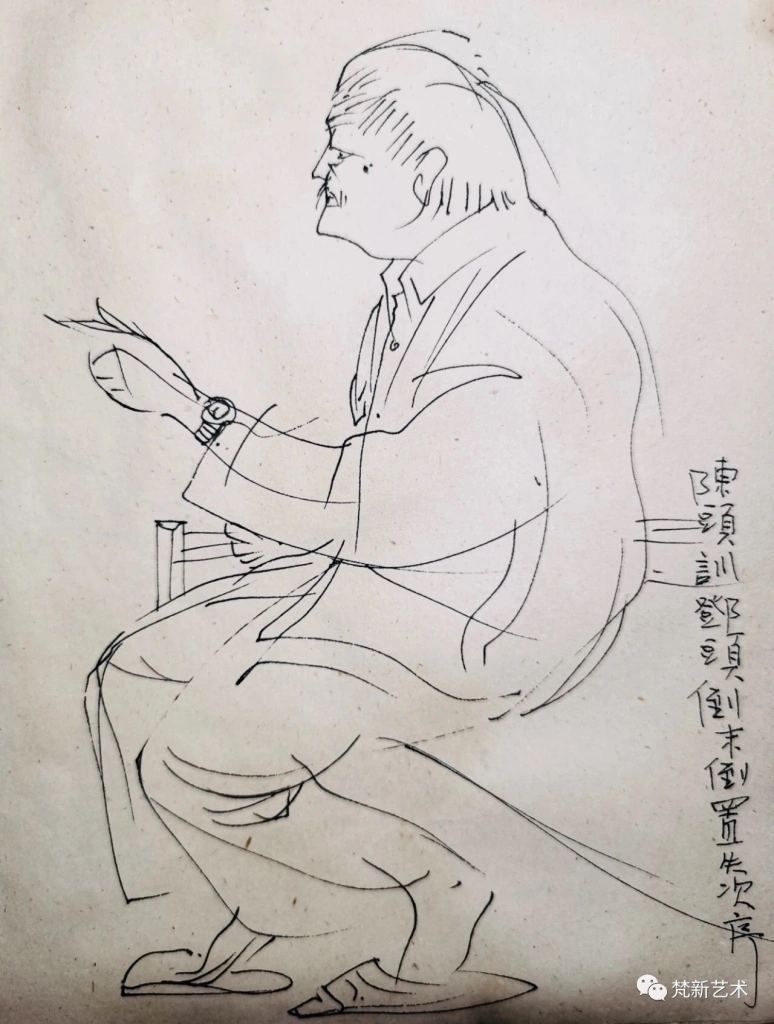 陳頭訓鄧頭倒末倒置失次序
梵新艺术